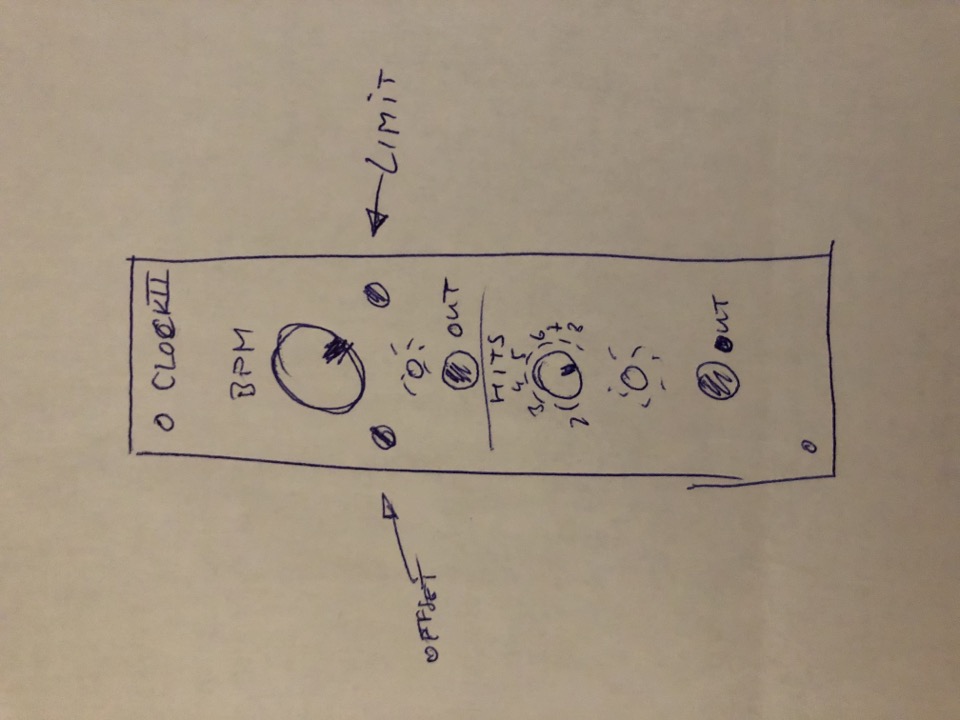 CLOCK II
BPM
OFFSET
LIMIT
OUT
HITS
2 3 4 5 6 7 8
OUT